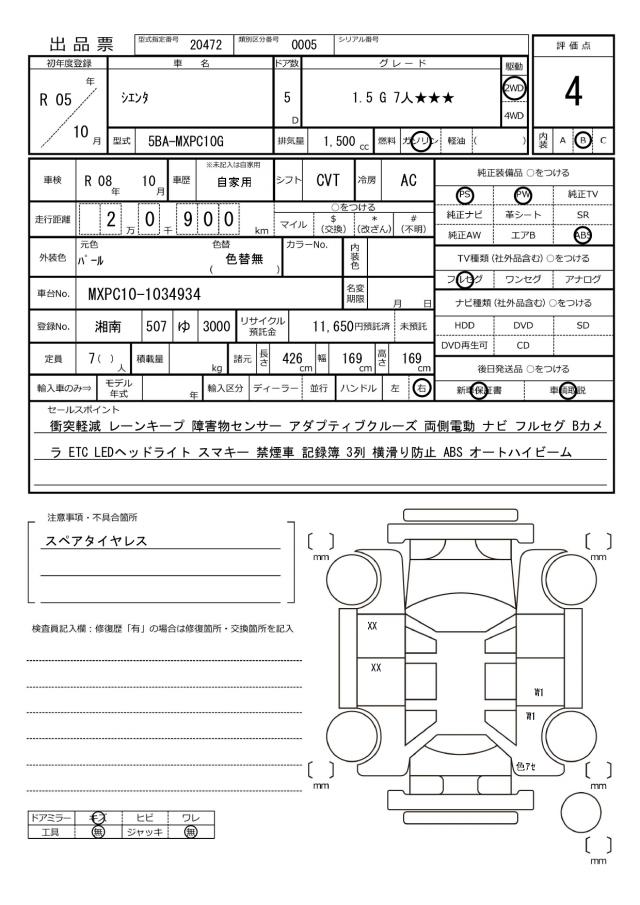 出品票 型式指定番号 20472 類別区分番号 0005 シリアル番号
評価点
4
初年度登録 車名 ドア数 グレード 駆動
R 05 年 10 月 シエンタ 5 D 1.5 G 7人★★★ 2WD 4WD
型式 5BA-MXPC10G 排気量 1,500 cc 燃料 ガソリン 軽油 ( ) 内装 A B C
車検 R 08 年 10 月 車歴 ※未記入は自家用 自家用 シフト CVT 冷房 AC
走行距離 2 万 0 千 9 0 0 km ○をつける マイル $ (交換) * (改ざん) # (不明)
外装色 元色 パール 色替 ( 色替無 ) カラーNo. 内装色
車台No. MXPC10-1034934 名変期限 月 日
登録No. 湘南 507 ゆ 3000 リサイクル預託金 11,650円預託済 未預託
定員 7( ) 人 積載量 kg 諸元 長さ 426 cm 幅 169 cm 高さ 169 cm
輸入車のみ⇒ モデル年式 年 輸入区分 ディーラー 並行 ハンドル 左 右
純正装備品 ○をつける
PS PW 純正TV
純正ナビ 革シート SR
純正AW エアB ABS
TV種類 (社外品含む) ○をつける
フルセグ ワンセグ アナログ
ナビ種類 (社外品含む) ○をつける
HDD DVD SD
DVD再生可 CD
後日発送品 ○をつける
新車保証書 車輌取説
セールスポイント
衝突軽減 レーンキープ 障害物センサー アダプティブクルーズ 両側電動 ナビ フルセグ Bカメ
ラ ETC LEDヘッドライト スマキー 禁煙車 記録簿 3列 横滑り防止 ABS オートハイビーム
注意事項・不具合箇所
スペアタイヤレス
検査員記入欄：修復歴「有」の場合は修復箇所・交換箇所を記入
〔 〕 mm 〔 〕 mm
XX
XX
W1
W1
色アセ
〔 〕 mm 〔 〕 mm
〔 〕 mm
ドアミラー キズ ヒビ ワレ
工具 無 ジャッキ 無